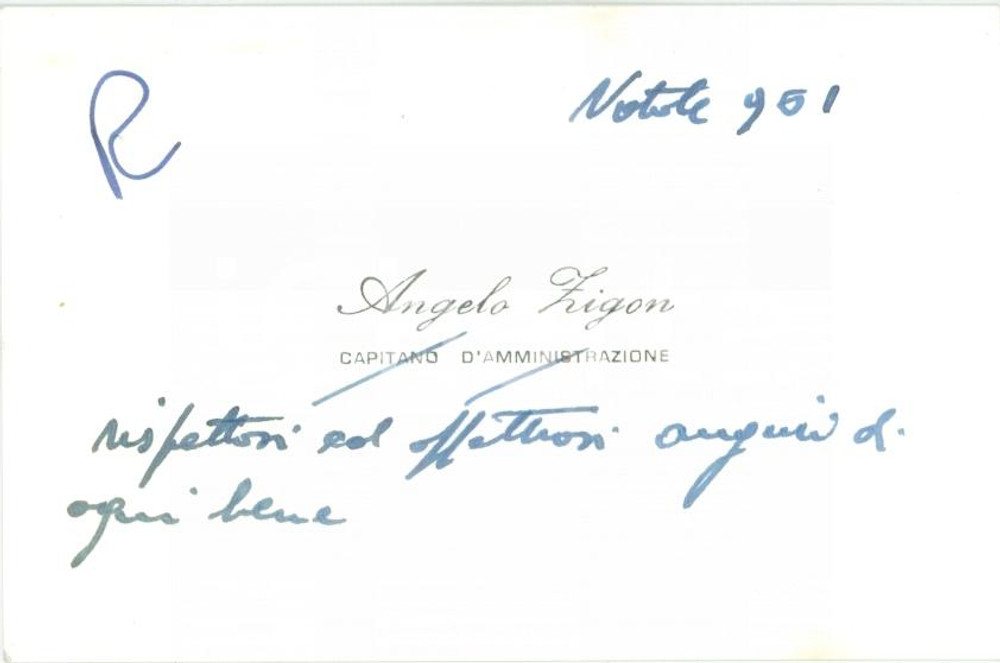 R
Natale 951
Angelo Zigon
CAPITANO D'AMMINISTRAZIONE
rispettosi ed affettuosi auguri di
ogni bene